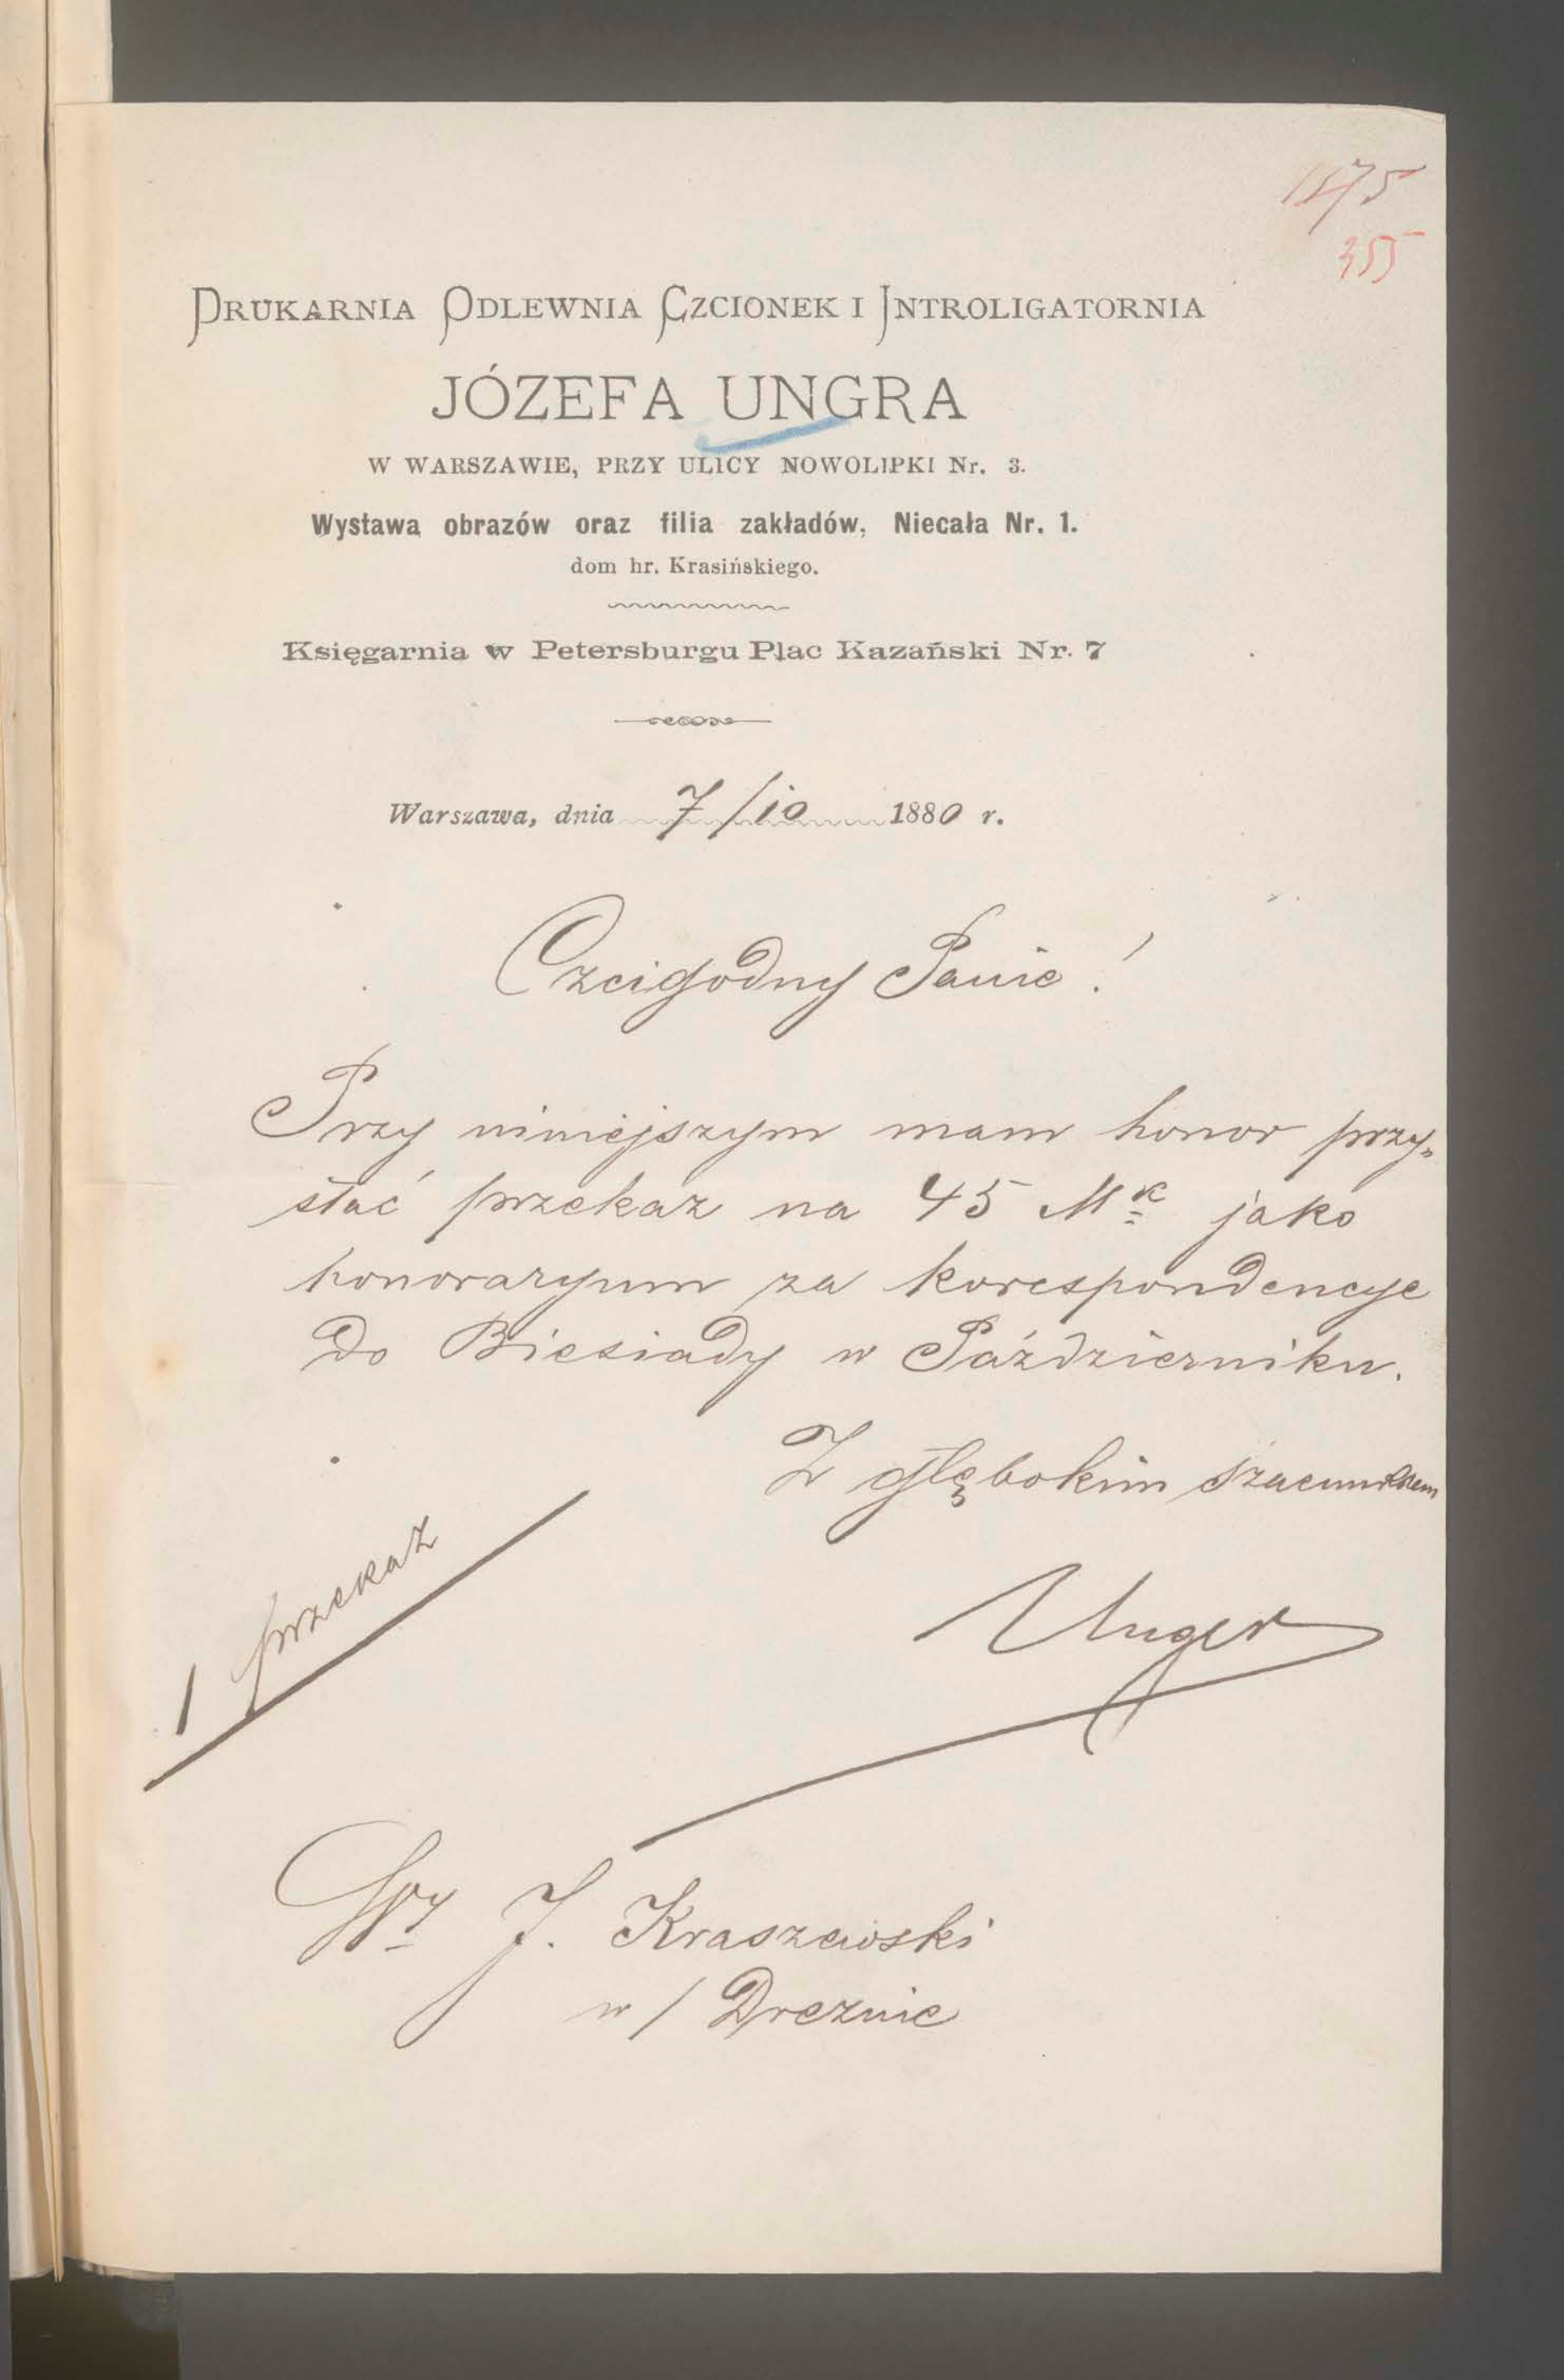 355
DRUKARNIA ODLEWNIA CZCIONEK I INTROLIGATORNIA
JÓZEFA UNGRA
W WARSZAWIE, PRZY ULICY NOWOLIPKI Nr. 3.
Wystawa obrazów oraz filia zakładów, Niecała Nr. 1.
dom hr. Krasińskiego.
Księgarnia w Petersburgu Plac Kazański Nr. 7
Warszawa, dnia 7/10 1880 r.
Czcigodny Panie!
Przy niniejszym mam honor przy-
słać przekaz na 45 Mk jako
honoraryum za korespondencye
do Biesiady w Październiku.
Z głębokim szacunkiem
Unger
1 przekaz
Wy J. Kraszewski
w/ Dreznie